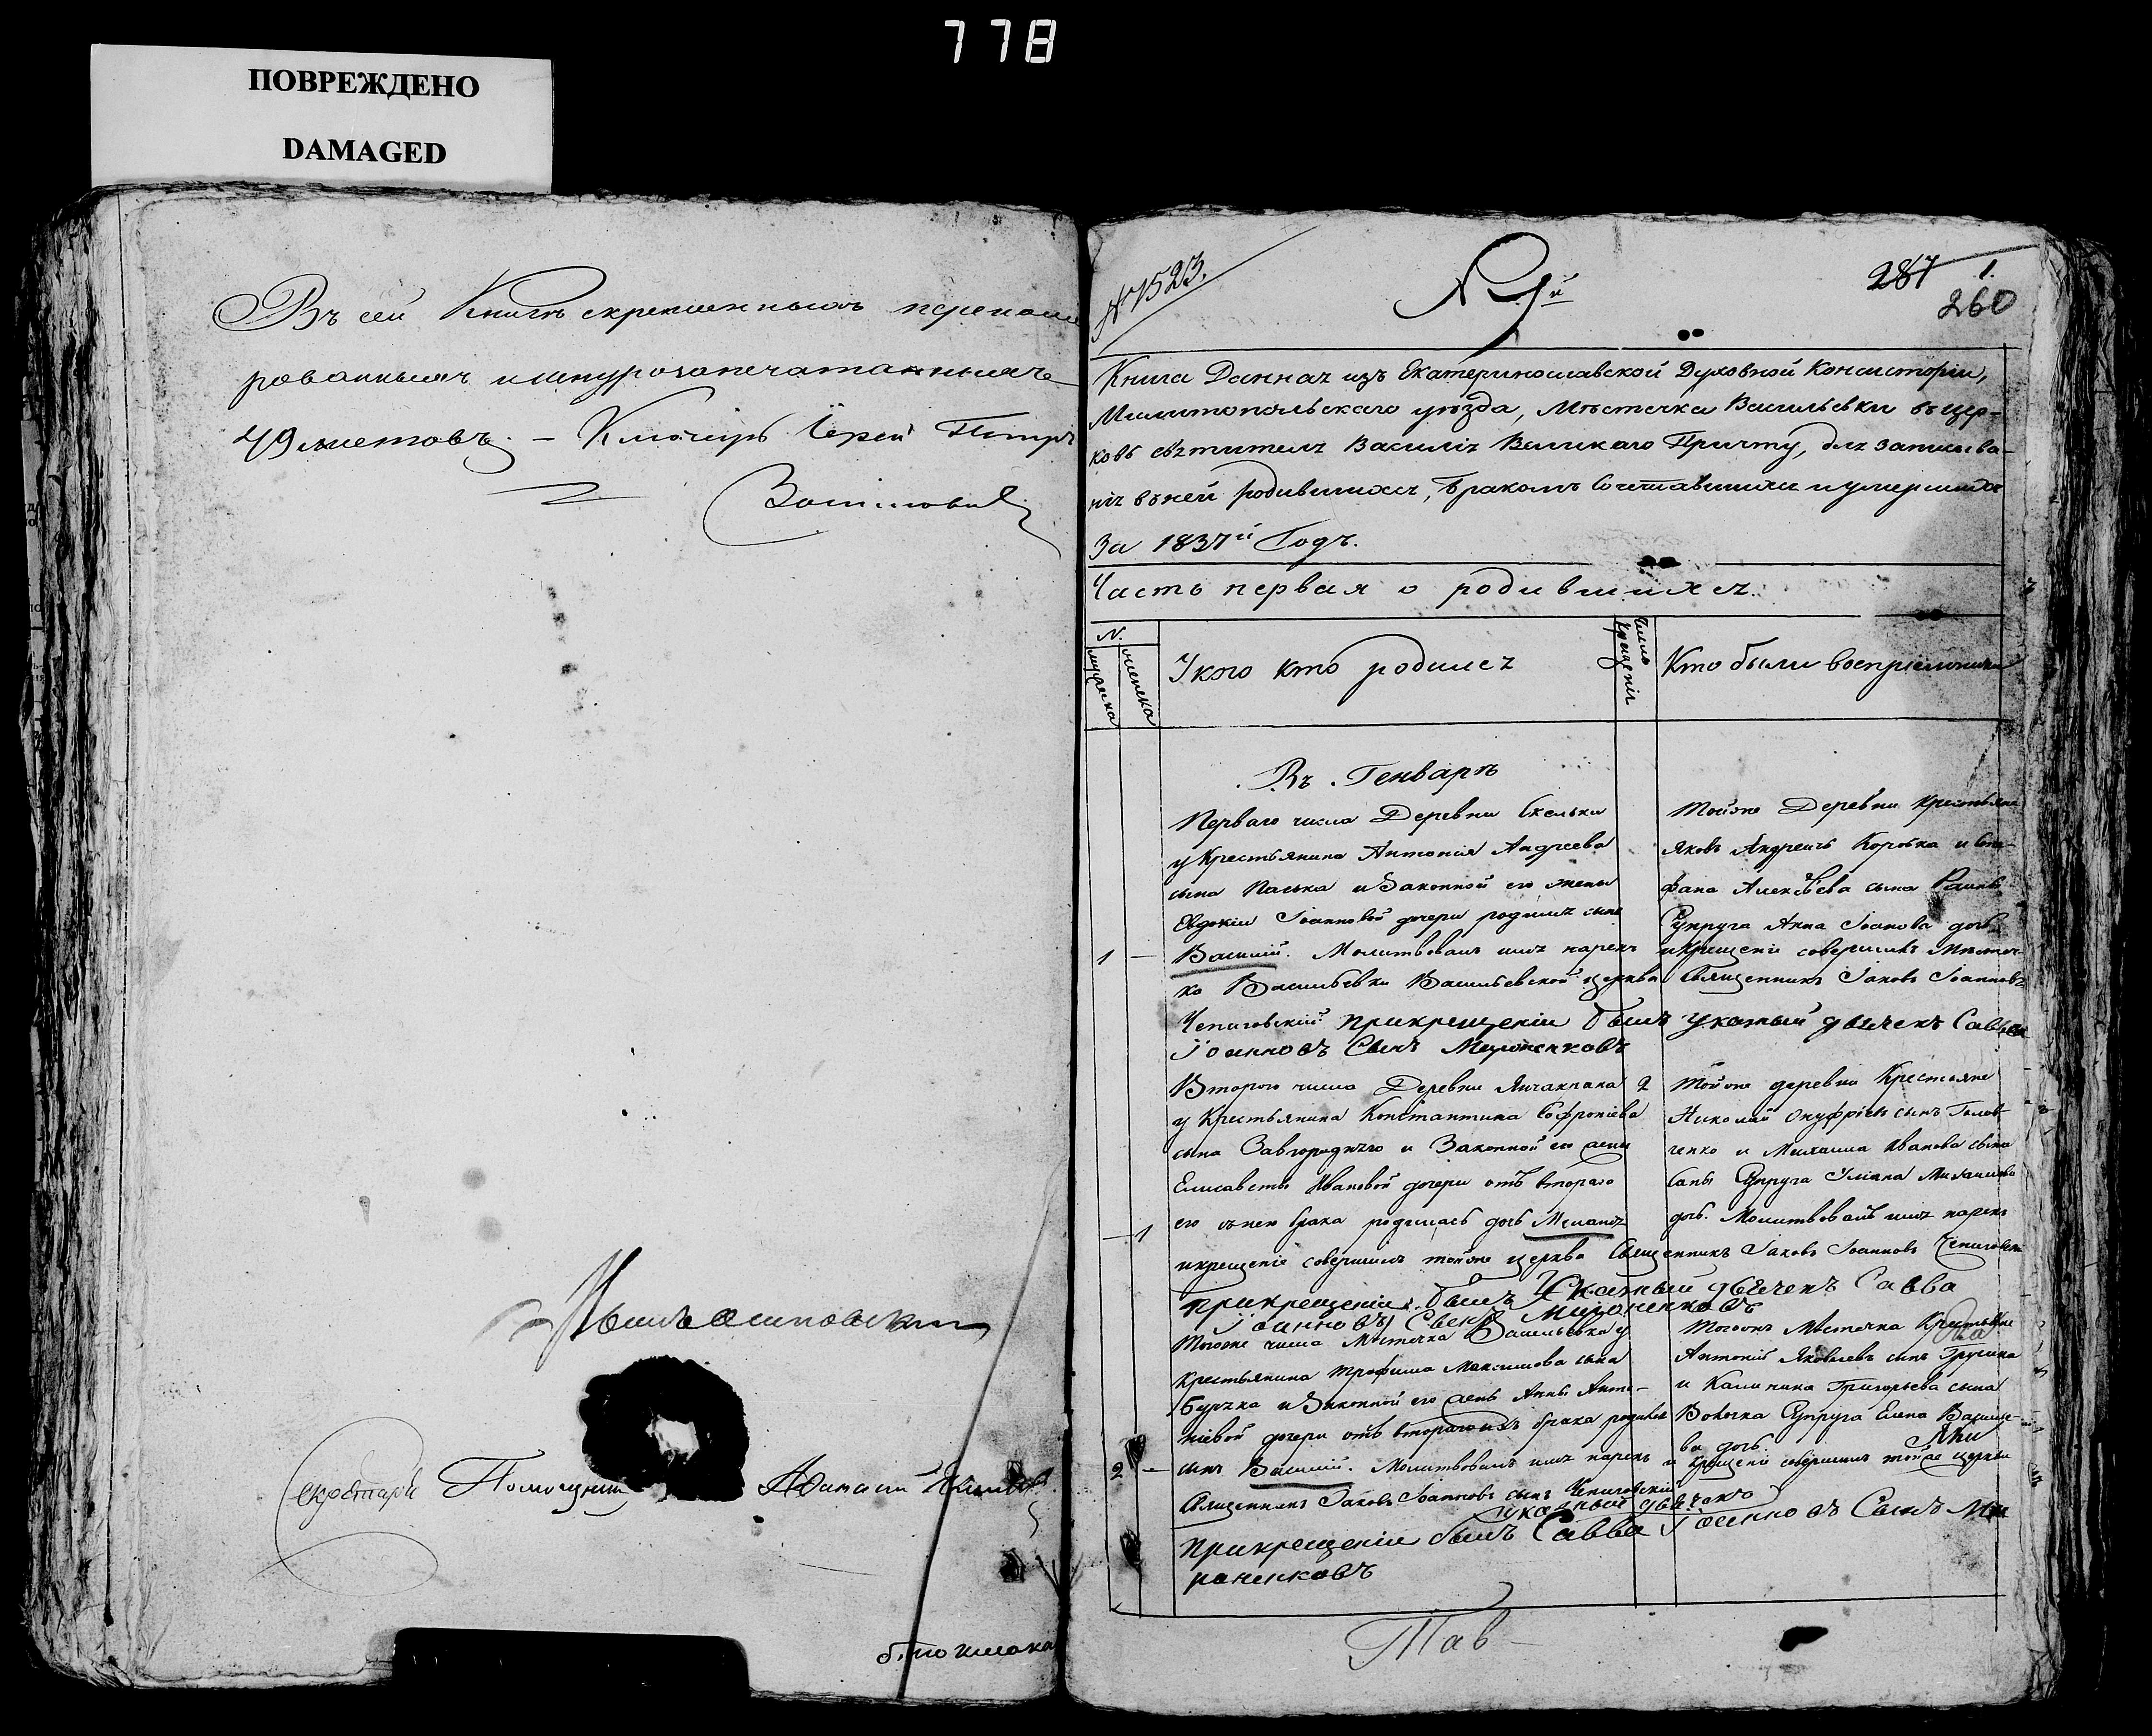 778
ПОВРЕЖДЕНО
DAMAGED
Въ сей Книгѣ скрепленныхъ перенуме
рованныхъ и шнурозапечатанныхъ
49 листовъ. – Ключарь Іерей Петръ
Секретарь Помощник
№ 1523.
№ 1й
287 1.
260
Книга Данная изъ Екатеринославской Духовной Консисторіи,
Мелитопольскаго уѣзда, Мѣстечка Васильевки въ цер-
ковь святителя Василія Великаго Причту, для записыва-
нія въ ней родившихся, бракомъ сочетавшихся и умершихъ
За 1837й Годъ.
Часть первая о родившихся.
N.
мужеска
женска
У кого кто родился
Число крещенія
Кто были воспріемники
Въ Генварѣ
Перваго числа Деревни Скельки
у Крестьянина Антонія Андреева
сына Паська и Законной его жены
Евдокіи Іоанновой дочери родился сынъ
1 – Василій. Молитвовалъ имя нарекъ
ка Васильевки Васильевской церкви
Чепиговскій при крещеніи былъ указный дьячекъ Савва
Іоанновъ Сынъ Мироненковъ
Тойже Деревни Крестьяне
Яковъ Андреевъ Коробка и Сте-
фана Алексѣева сына
Супруга Анна Іоанова дочь
и крещеніе совершилъ Мѣстеч-
Священникъ Іаковъ Іоанновъ
Второго числа Деревни Янчакрака 2
у Крестьянина Константина Софроніева
сына Завгороднего и Законной его жены
Елисаветы Ивановой дочери отъ втораго
– 1 его съ нею брака родилась дочь Меланія
и крещеніе совершилъ тойже церкви Священникъ Іаковъ Іоанновъ Чепиговскій
при крещеніи былъ Указный дьячекъ Савва
Іоанновъ Сынъ Мироненковъ
Тойже деревни Крестьяне
Николай Онуфріевъ сынъ Голов-
ченко и Михаила Иванова сына
Сапы Супруга Уліана Михаилова
дочь. Молитвовалъ имя нарекъ
Тогоже числа Мѣстечка Васильевка у
Крестьянина Трофима Максимова сына
Буряка и Законной его жены Анны Анто-
ніевой дочери отъ втораго ихъ брака родился
2 – сынъ Василій. Молитвовалъ имя нарекъ и крещеніе совершилъ тойже церкви
Священникъ Іаковъ Іоанновъ сынъ Чепиговскій
указный дьячекъ
При крещеніи былъ Савва Іоанновъ Сынъ Ми
роненковъ
Тогожъ Мѣстечка Крестьяне
Антоній Яковлевъ сынъ
и Калиника Григорьева сына
Супруга Елена Василье-
ва дочь.
Тав-